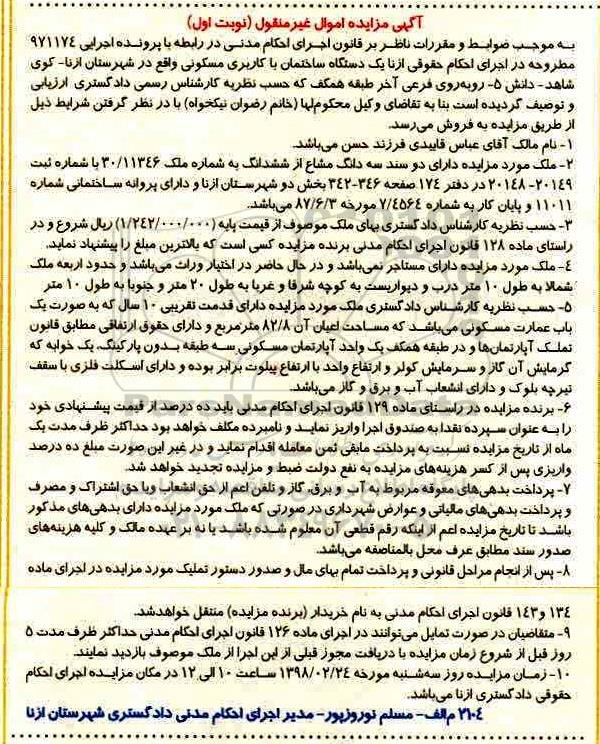 آگهی مزایده اموال غیرمنقول (نوبت اول)
به موجب ضوابط و مقررات ناظر بر قانون اجرای احکام مدنی در رابطه با پرونده اجرایی ۹۷۱۱۷۴
مطروحه در اجرای احکام حقوقی ازنا یک دستگاه ساختمان با کاربری مسکونی واقع در شهرستان ازنا- کوی
شاهد- دانش ۵- روبه‌روی فرعی آخر طبقه همکف که حسب نظریه کارشناس رسمی دادگستری ارزیابی
و توصیف گردیده است بنا به تقاضای وکیل محکوم‌لها (خانم رضوان نیکخواه) با در نظر گرفتن شرایط ذیل
از طریق مزایده به فروش می‌رسد.
۱- نام مالک آقای عباس قایبدی فرزند حسن می‌باشد.
۲- ملک مورد مزایده دارای دو سند سه دانگ مشاع از ششدانگ به شماره ملک ۳۰/۱۱۳۴۶ با شماره ثبت
۲۰۱۴۹- ۲۰۱۴۸ در دفتر ۱۷۴ صفحه ۳۴۶-۳۴۲ بخش دو شهرستان ازنا و دارای پروانه ساختمانی شماره
۱۱۰۱۱ و پایان کار به شماره ۷/۴۵۶۴ مورخه ۸۷/۶/۳ می‌باشد.
۳- حسب نظریه کارشناس دادگستری بهای ملک موصوف از قیمت پایه (۱/۲۴۲/۰۰۰/۰۰۰) ریال شروع و در
راستای ماده ۱۲۸ قانون اجرای احکام مدنی برنده مزایده کسی است که بالاترین مبلغ را پیشنهاد نماید.
۴- ملک مورد مزایده دارای مستاجر نمی‌باشد و در حال حاضر در اختیار وراث می‌باشد و حدود اربعه ملک
شمالا به طول ۱۰ متر درب و دیواریست به کوچه شرقا و غربا به طول ۲۰ متر و جنوبا به طول ۱۰ متر
۵- حسب نظریه کارشناس دادگستری ملک مورد مزایده دارای قدمت تقریبی ۱۰ سال که به صورت یک
باب عمارت مسکونی می‌باشد که مساحت اعیان آن ۸۲/۸ مترمربع و دارای حقوق ارتفاقی مطابق قانون
تملک آپارتمان‌ها و در طبقه همکف یک واحد آپارتمان مسکونی سه طبقه بدون پارکینگ، یک خوابه که
گرمایش آن گاز و سرمایش کولر و ارتفاع واحد با ارتفاع پیلوت برابر بوده و دارای اسکلت فلزی با سقف
تیرچه بلوک و دارای انشعاب آب و برق و گاز می‌باشد.
۶- برنده مزایده در راستای ماده ۱۲۹ قانون اجرای احکام مدنی باید ده درصد از قیمت پیشنهادی خود
را به عنوان سپرده نقدا به صندوق اجرا واریز نماید و نامبرده مکلف خواهد بود حداکثر ظرف مدت یک
ماه از تاریخ مزایده نسبت به پرداخت مابقی ثمن معامله اقدام نماید و در غیر این صورت مبلغ ده درصد
واریزی پس از کسر هزینه‌های مزایده به نفع دولت ضبط و مزایده تجدید خواهد شد.
۷- پرداخت بدهی‌های معوقه مربوط به آب و برق، گاز و تلفن اعم از حق انشعاب ویا حق اشتراک و مصرف
و پرداخت بدهی‌های مالیاتی و عوارض شهرداری در صورتی که ملک مورد مزایده دارای بدهی‌های مذکور
باشد تا تاریخ مزایده اعم از اینکه رقم قطعی آن معلوم شده باشد یا نه بر عهده مالک و کلیه هزینه‌های
صدور سند مطابق عرف محل بالمناصفه می‌باشد.
۸- پس از انجام مراحل قانونی و پرداخت تمام بهای مال و صدور دستور تملیک مورد مزایده در اجرای ماده
۱۳۴ و ۱۴۳ قانون اجرای احکام مدنی به نام خریدار (برنده مزایده) منتقل خواهدشد.
۹- متقاضیان در صورت تمایل می‌توانند در اجرای ماده ۱۲۶ قانون اجرای احکام مدنی حداکثر ظرف مدت ۵
روز قبل از شروع زمان مزایده با دریافت مجوز قبلی از این اجرا از ملک موصوف بازدید نمایند.
۱۰- زمان مزایده روز سه‌شنبه مورخه ۱۳۹۸/۰۲/۲۴ ساعت ۱۰ الی ۱۲ در مکان مزایده اجرای احکام
حقوقی دادگستری ازنا می‌باشد.
۲۱۰۴ م‌الف- مسلم نوروزپور- مدیر اجرای احکام مدنی دادگستری شهرستان ازنا